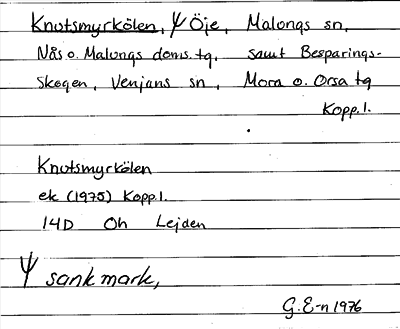 Knutsmyrkölen, Ψ Öje, Malungs sn,
Nås o. Malungs doms. tg, samt Besparings-
skogen, Venjans sn, Mora o. Orsa tg
Kopp. l.
Knutsmyrkölen
ek (1975) Kopp. l.
14D Oh Lejden
Ψ sank mark,
G. E-n 1976